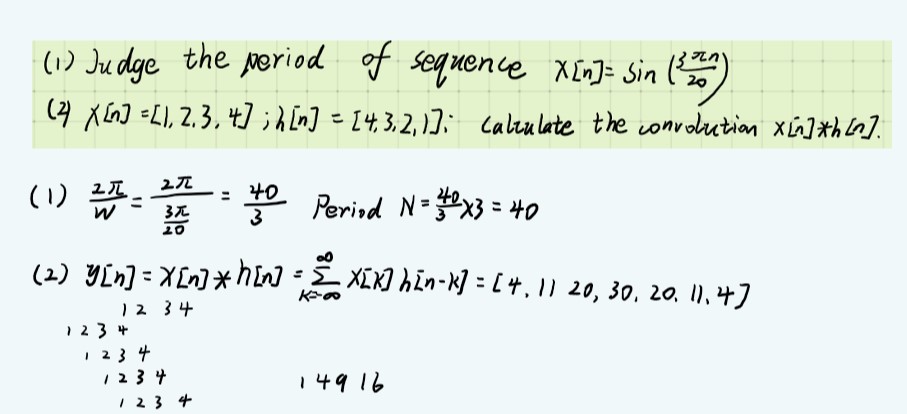 (1) Judge the period of sequence X[n]= sin (3πn/20)
(2) X[n] =[1, 2, 3, 4] ; h[n] = [4, 3, 2, 1]; Calculate the convolution x[n]*h[n].
(1) 2π/W = 2π/(3π/20) = 40/3 Period N = 40/3 ×3 = 40
(2) y[n] = X[n] * h[n] = ∑_{K=-∞}^{∞} X[K] h[n-K] = [4, 11 20, 30, 20, 11, 4]
1 2 3 4
1 2 3 4
1 2 3 4
1 2 3 4 1 4 9 16
1 2 3 4